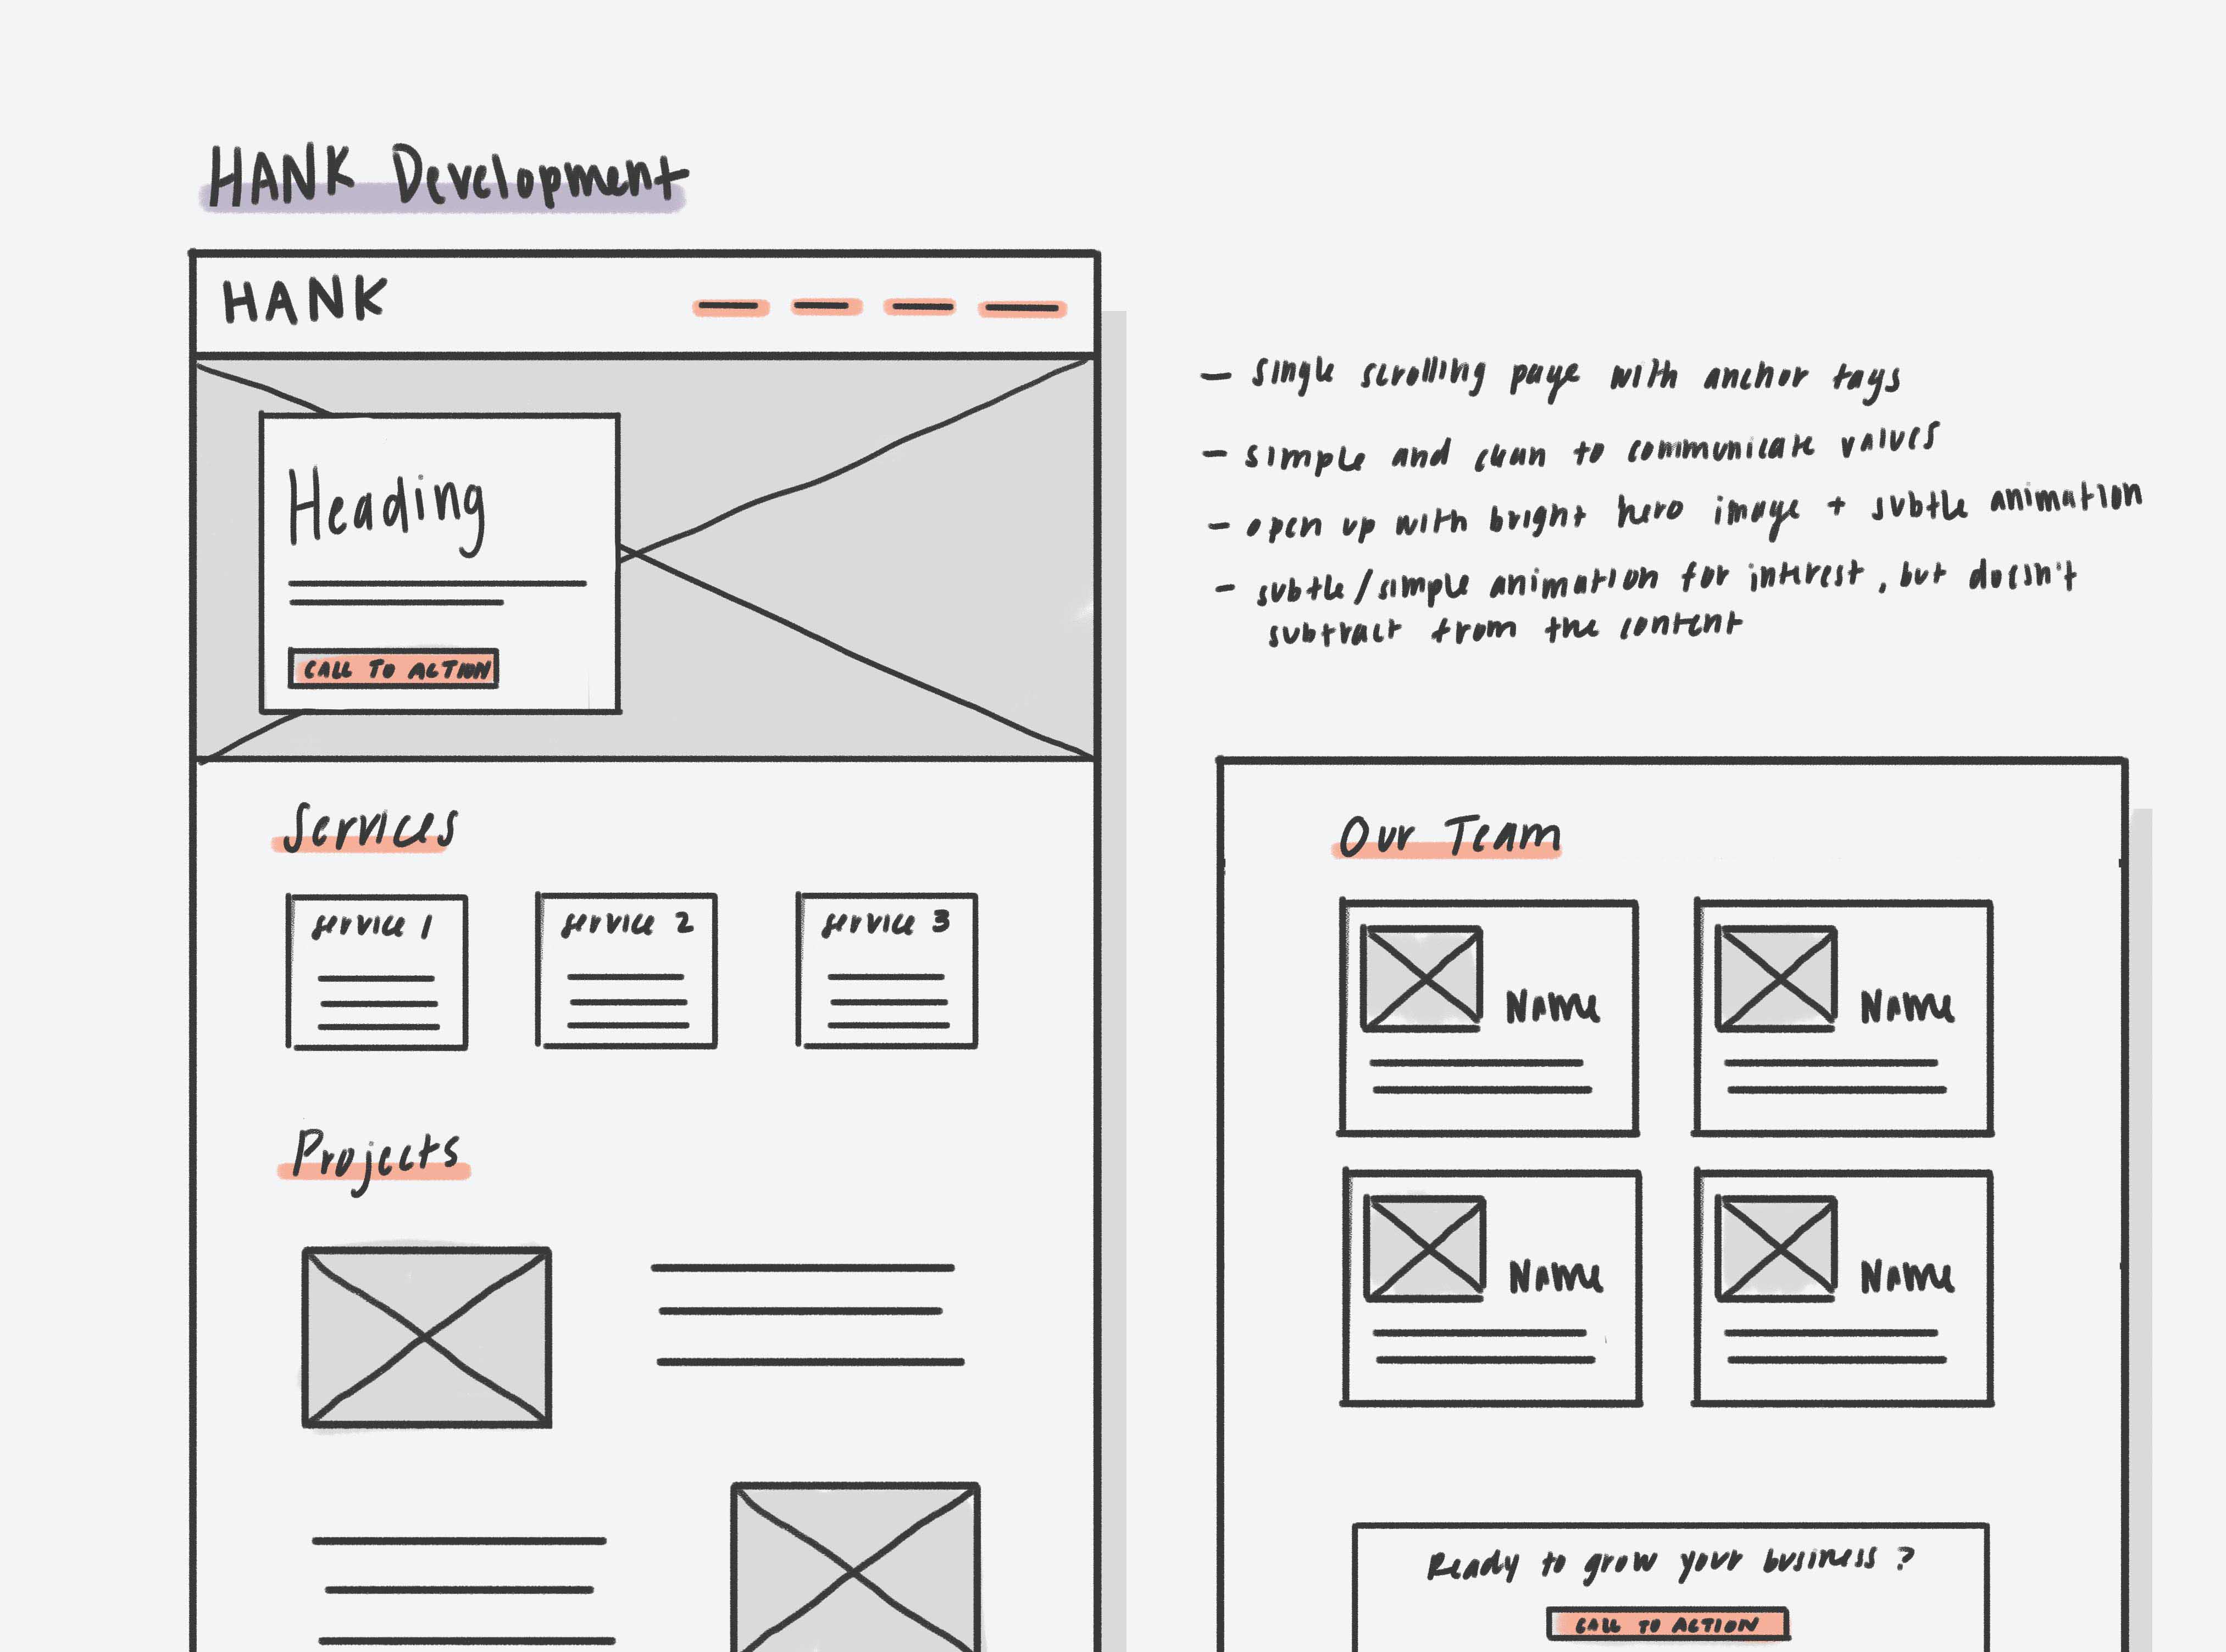 HANK Development
HANK
Heading
CALL TO ACTION
Services
service 1
service 2
service 3
Projects
- single scrolling page with anchor tags
- simple and clean to communicate values
- open up with bright hero image + subtle animation
- subtle/simple animation for interest, but doesn't
subtract from the content
Our Team
Name
Name
Name
Name
Ready to grow your business?
CALL TO ACTION